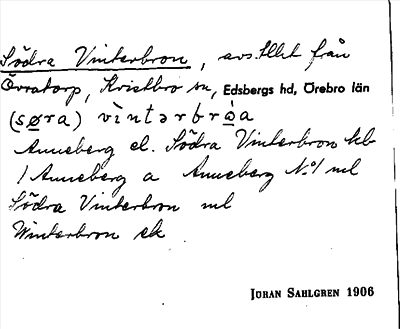 Södra Vinterbron, avs. till från
Övratorp, Kvistbro sn, Edsbergs hd, Örebro län
(sø̱ra) vìntərbrȯ̱a
Anneberg el. Södra Vinterbron hb
1 Anneberg a Anneberg No 1 ml
Södra Vinterbron ml
Winterbron ek
JÖRAN SAHLGREN 1906